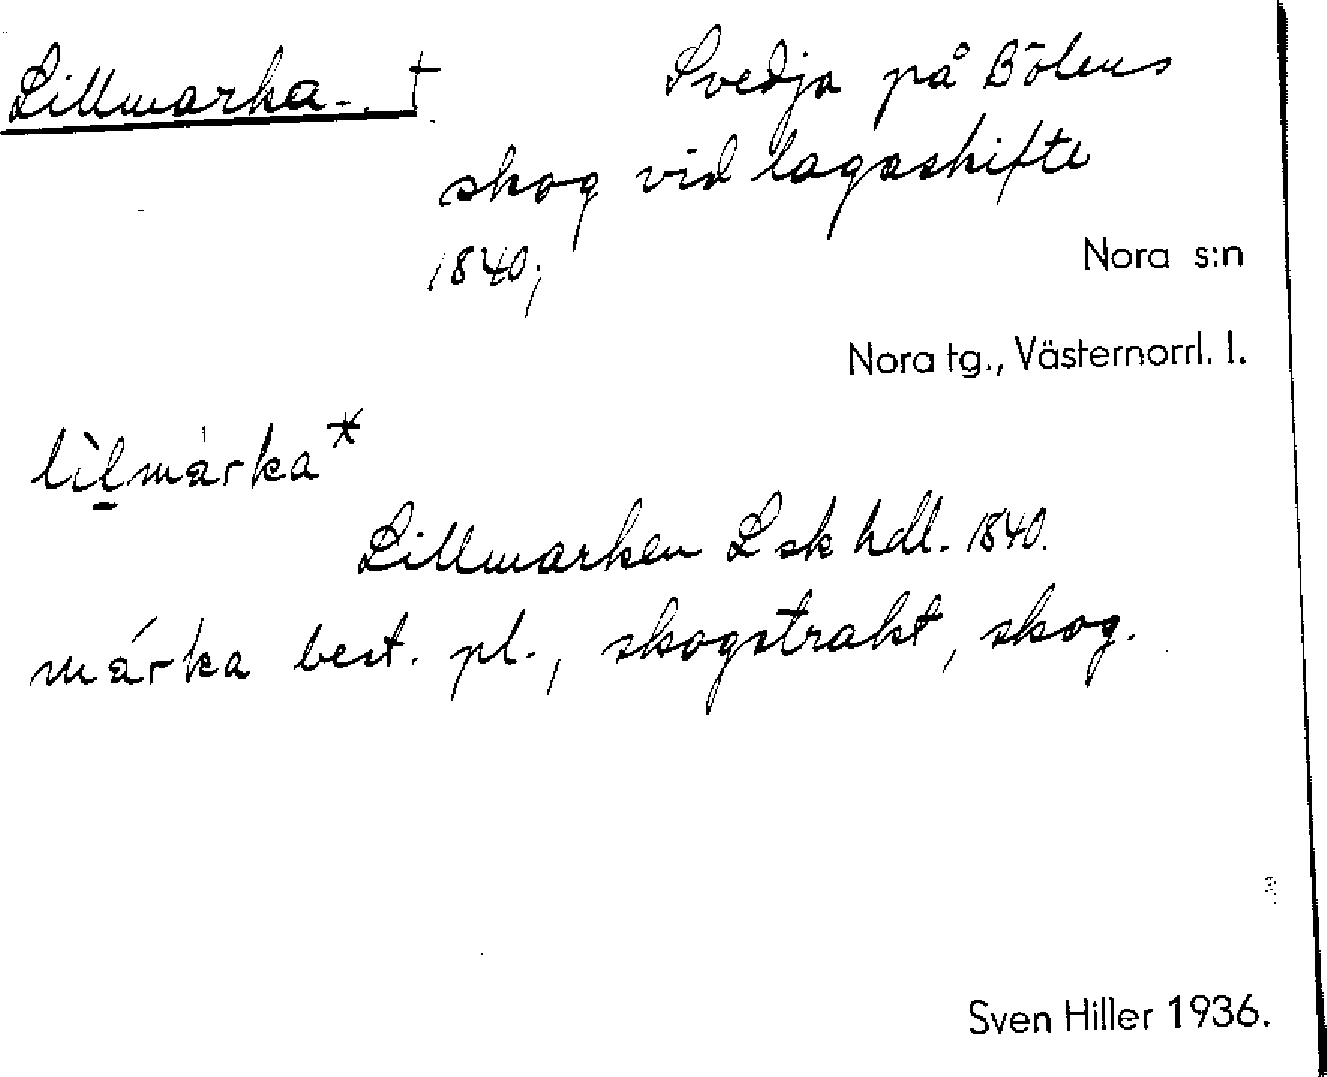 Lillmarka †
Svedja på Bölens
skog vid lagaskifte
1840;
Nora s:n
Nora tg., Västernorrl. l.
lìlmárka*
Lillmarken Lsk hdl. 1840.
márka best. pl., skogstrakt, skog.
Sven Hiller 1936.